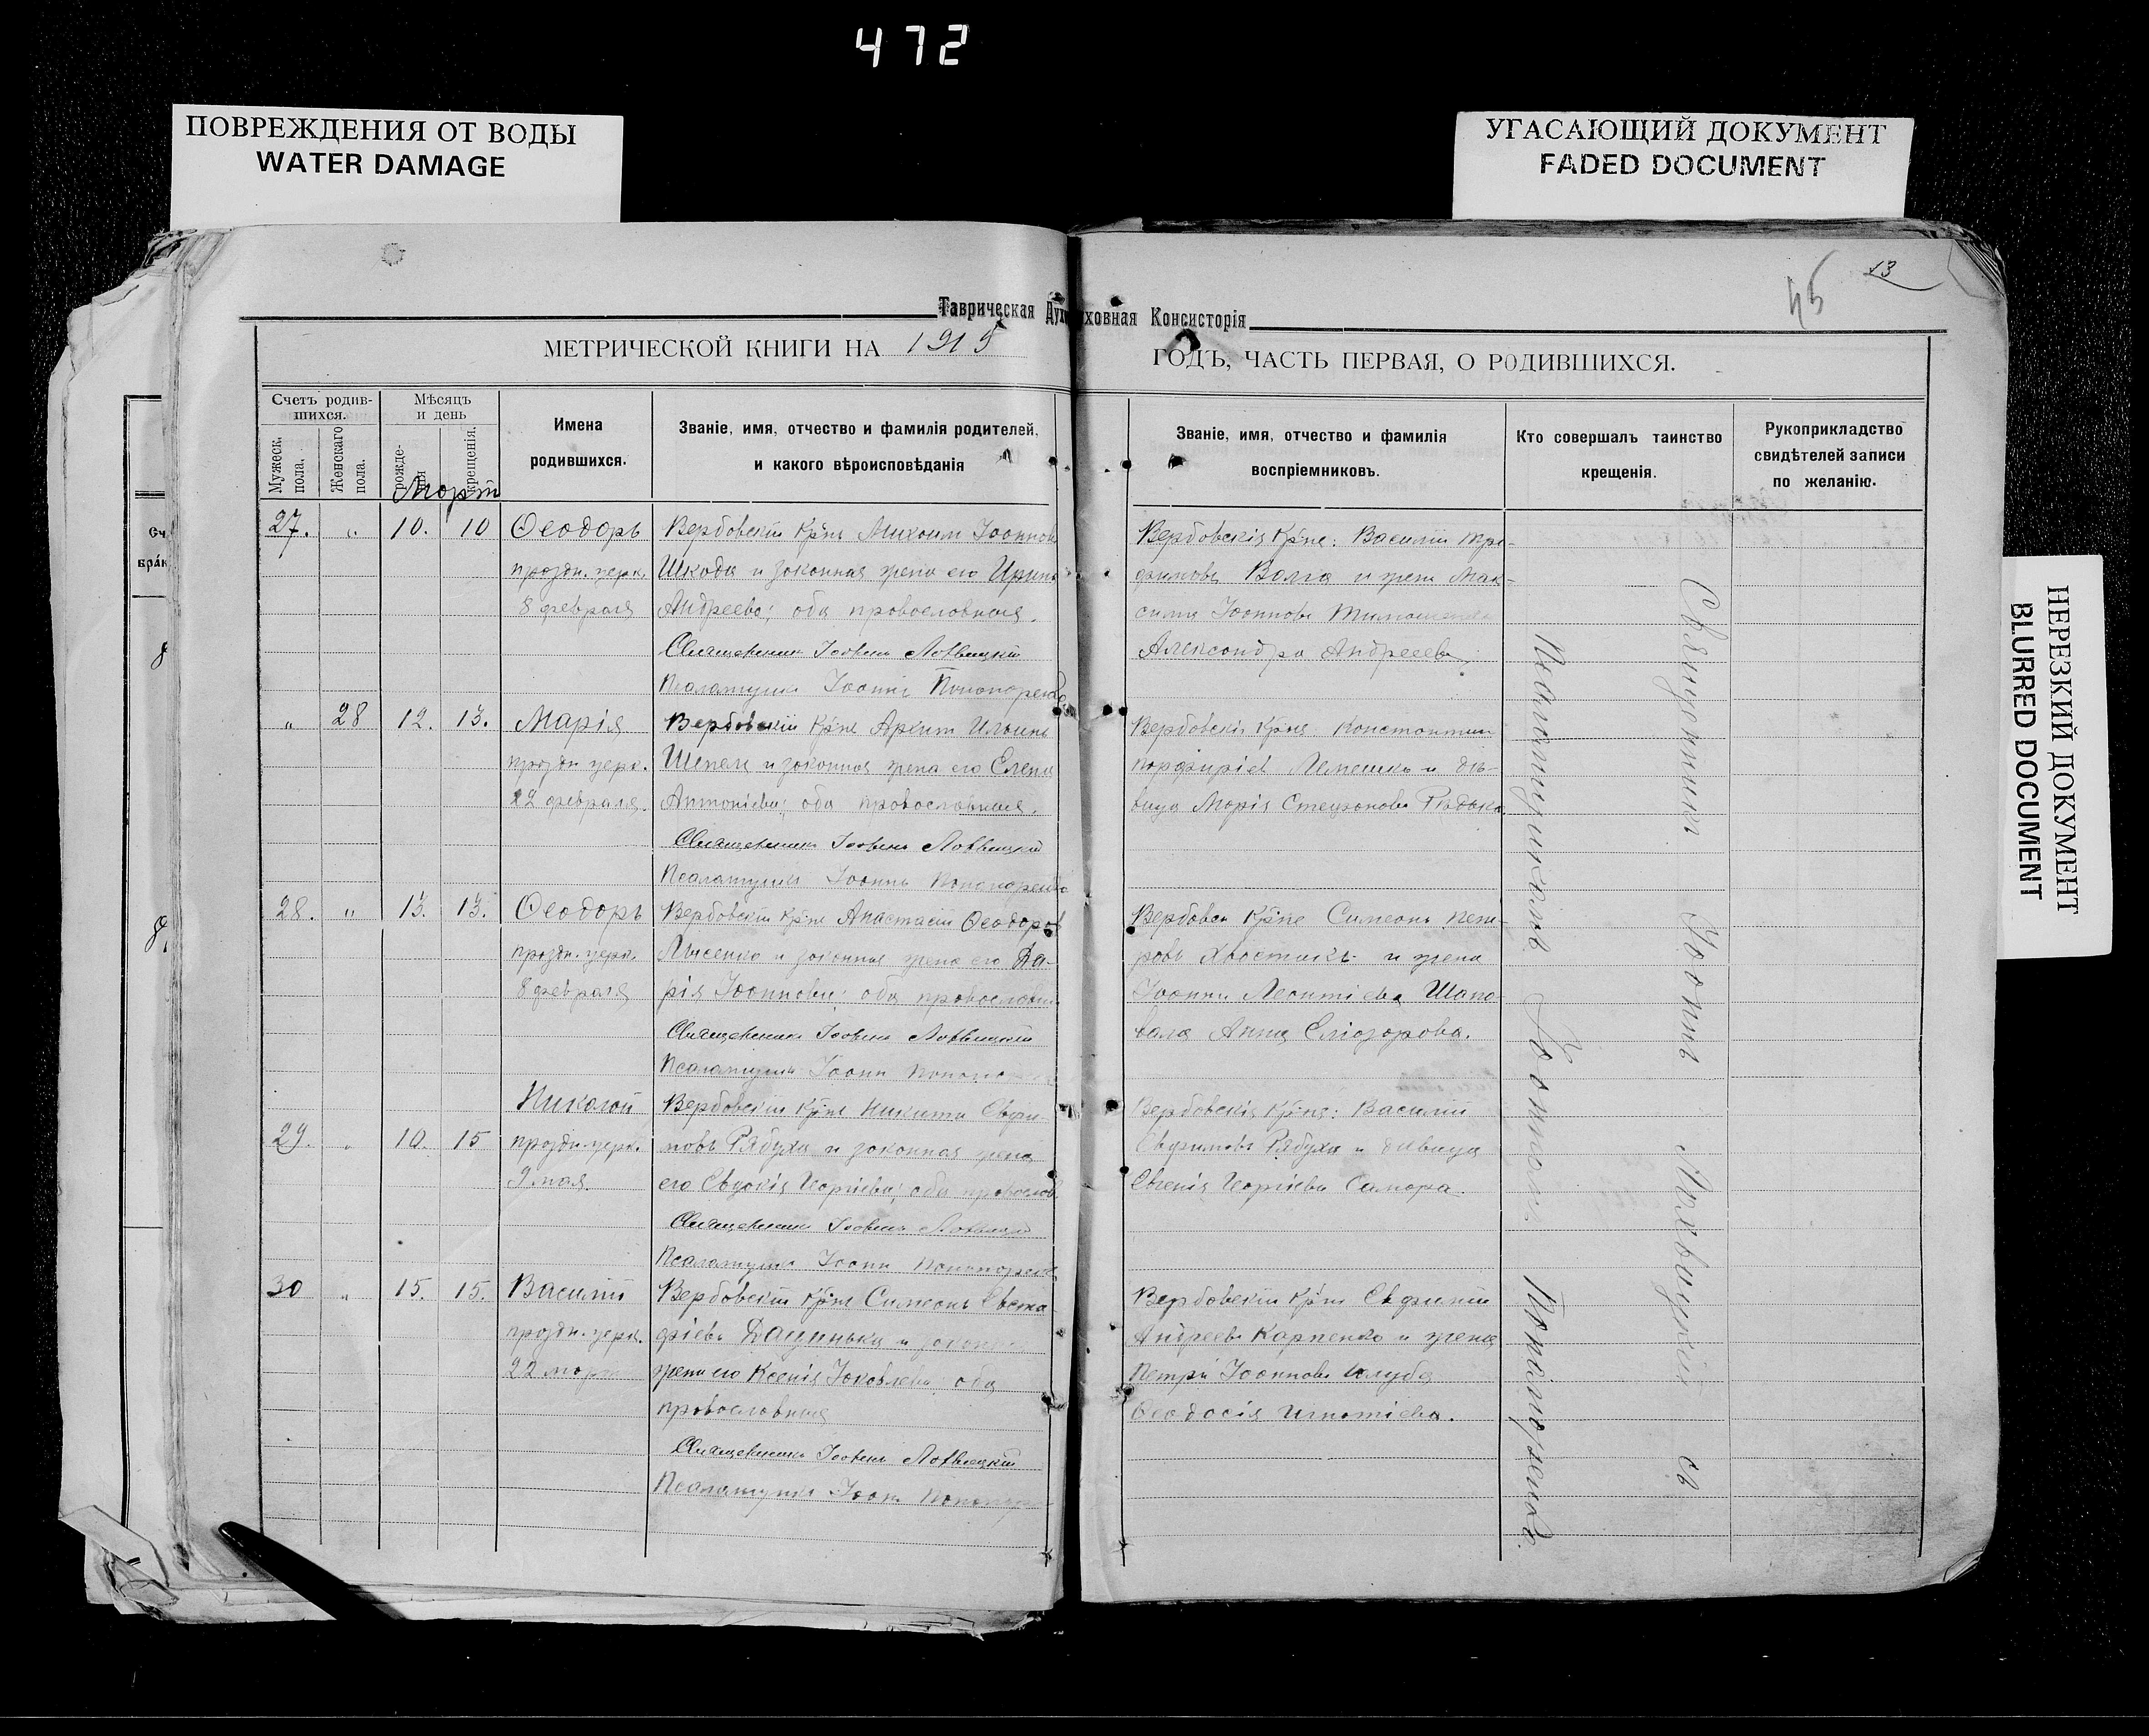 472
ПОВРЕЖДЕНИЯ ОТ ВОДЫ
WATER DAMAGE
УГАСАЮЩИЙ ДОКУМЕНТ
FADED DOCUMENT
НЕРЕЗКИЙ ДОКУМЕНТ
BLURRED DOCUMENT
45 13
Таврическая Духовная Консисторія
МЕТРИЧЕСКОЙ КНИГИ НА 1915
ГОДЪ, ЧАСТЬ ПЕРВАЯ, О РОДИВШИХСЯ.
Счетъ родив-
шихся.
Мужеск. пола.
Женскаго пола.
Мѣсяцъ
и день
рожде-
нія
крещенія.
Имена
родившихся.
Званіе, имя, отчество и фамилія родителей,
и какого вѣроисповѣданія
Званіе, имя, отчество и фамилія
воспріемниковъ.
Кто совершалъ таинство
крещенія.
Рукоприкладство
свидѣтелей записи
по желанію.
Мартъ
27. " 10. 10 Ѳеодоръ
праздн. церк.
8 февраля
Вербовскій кр-нъ Михаилъ Іоанновъ
Шкода и законная жена его Ирина
Андреева; оба православные.
Священникъ Іоаннъ
Псаломщикъ Іоаннъ Пономаренко
Вербовскіе кр-не: Василій Тро-
фимовъ Волга и жена Мак-
сима Іоаннова
Александра Андреева
" 28 12. 13. Марія
праздн. церк.
22 февраля.
Вербовскій кр-нъ Архипъ Ильинъ
Шепель и законная жена его Елена
Антоніева; оба православные.
Священникъ Іоаннъ
Псаломщикъ Іоаннъ Пономаренко
Вербовскіе кр-не Константинъ
Порфиріевъ Лемешко и дѣ-
вица Марія Стефанова Рѣдька
28. " 13. 13. Ѳеодоръ
праздн. церк.
8 февраля
Вербовскій кр-нъ Анастасій Ѳеодоровъ
Лысенко и законная жена его Да-
рія Іоаннова; оба православные
Священникъ Іоаннъ
Псаломщикъ Іоаннъ
Вербовск. кр-не Симеонъ Пет-
ровъ Хвостикъ и жена
Іоанна Леонтіева Шапо-
вала Анна Еліозорова.
29. " 10. 15 Николай
праздн. церк.
9 мая.
Вербовскій кр-нъ Никита Евфи-
мовъ Рябуха и законная жена
его Евдокія Георгіева; оба православ.
Священникъ Іоаннъ
Псаломщикъ Іоаннъ Пономаренко
Вербовскіе кр-не: Василій
Евфимовъ Рябуха и дѣвица
Евгенія Георгіева Самара.
30 " 15. 15. Василій
праздн. церк.
22 марта
Вербовскій кр-нъ Симеонъ Евста-
фіевъ Дацинька и законная
жена его Ксенія Іаковлева; оба
православные
Священникъ Іоаннъ
Псаломщикъ Іоаннъ
Вербовскій кр-нъ Евфимій
Андреевъ Карпенко и жена
Петра Іоаннова Голуба
Ѳеодосія Игнатіева.
Священникъ Іоаннъ съ
Псаломщикомъ Іоанномъ Пономаренко.